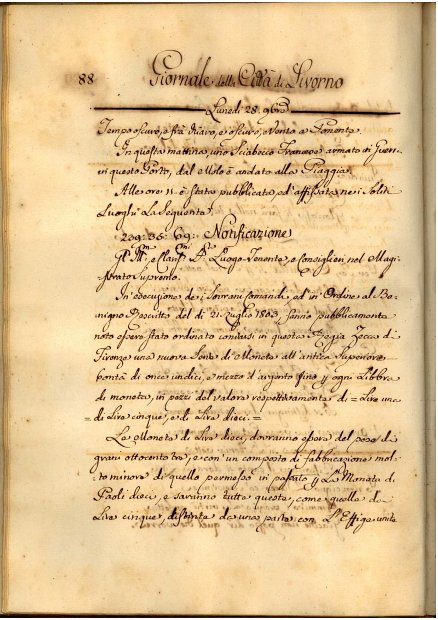 88 Giornale della Città di Livorno
Lunedì 28. 9bre
Tempo oscuro, e frà chiaro, e oscuro, e Vento a Ponente
In questa mattina, uno Sciabecco Francese armato in Guerra
in questo Porto, dal Molo è andato alla Piaggia
Alle ore 11. è stata pubblicata, ed' affissata nei Soliti
Luoghi La Seguente
239: 35: 69: Notificazione
Gl' Ill:mi e Clariss:mi Luogo-Tenente, e Consiglieri nel Magi
strato Supremo.
In esecuzione de i Sovrani Comandi, ed' in Ordine al Be
nigno Rescritto del dì 21. Luglio 1803, fanno pubblicamente
noto essere stato ordinato coniarsi in questa Regia Zecca di
Firenze una nuova Sorte di Moneta all' antica Superiore
bontà di once undici, e mezzo d'argento fine per ogni Libbra
di moneta, in pezzi del valore respettivamente di = Lire una
= di Lire cinque, e di Lire dieci. =
La Moneta di Lire dieci, dovranno essere del peso di
grani ottocento tre, e con' un composto di fabbricazione mol
to minore di quello permesso in passato per La Moneta di
Paoli dieci, e saranno tutte queste, come quelle di
Lire cinque, distinte da una parte con L' Effige unite